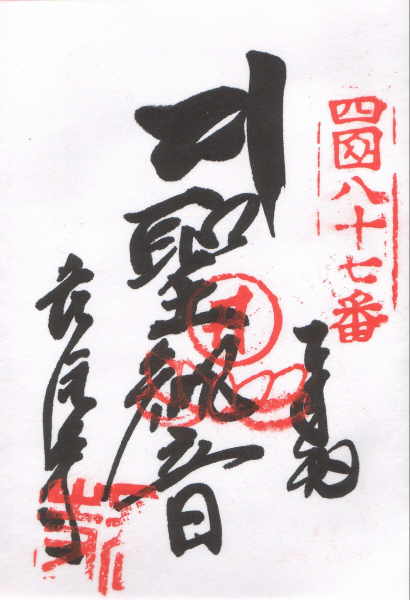 四国八十七番
奉納
聖観音
長尾寺